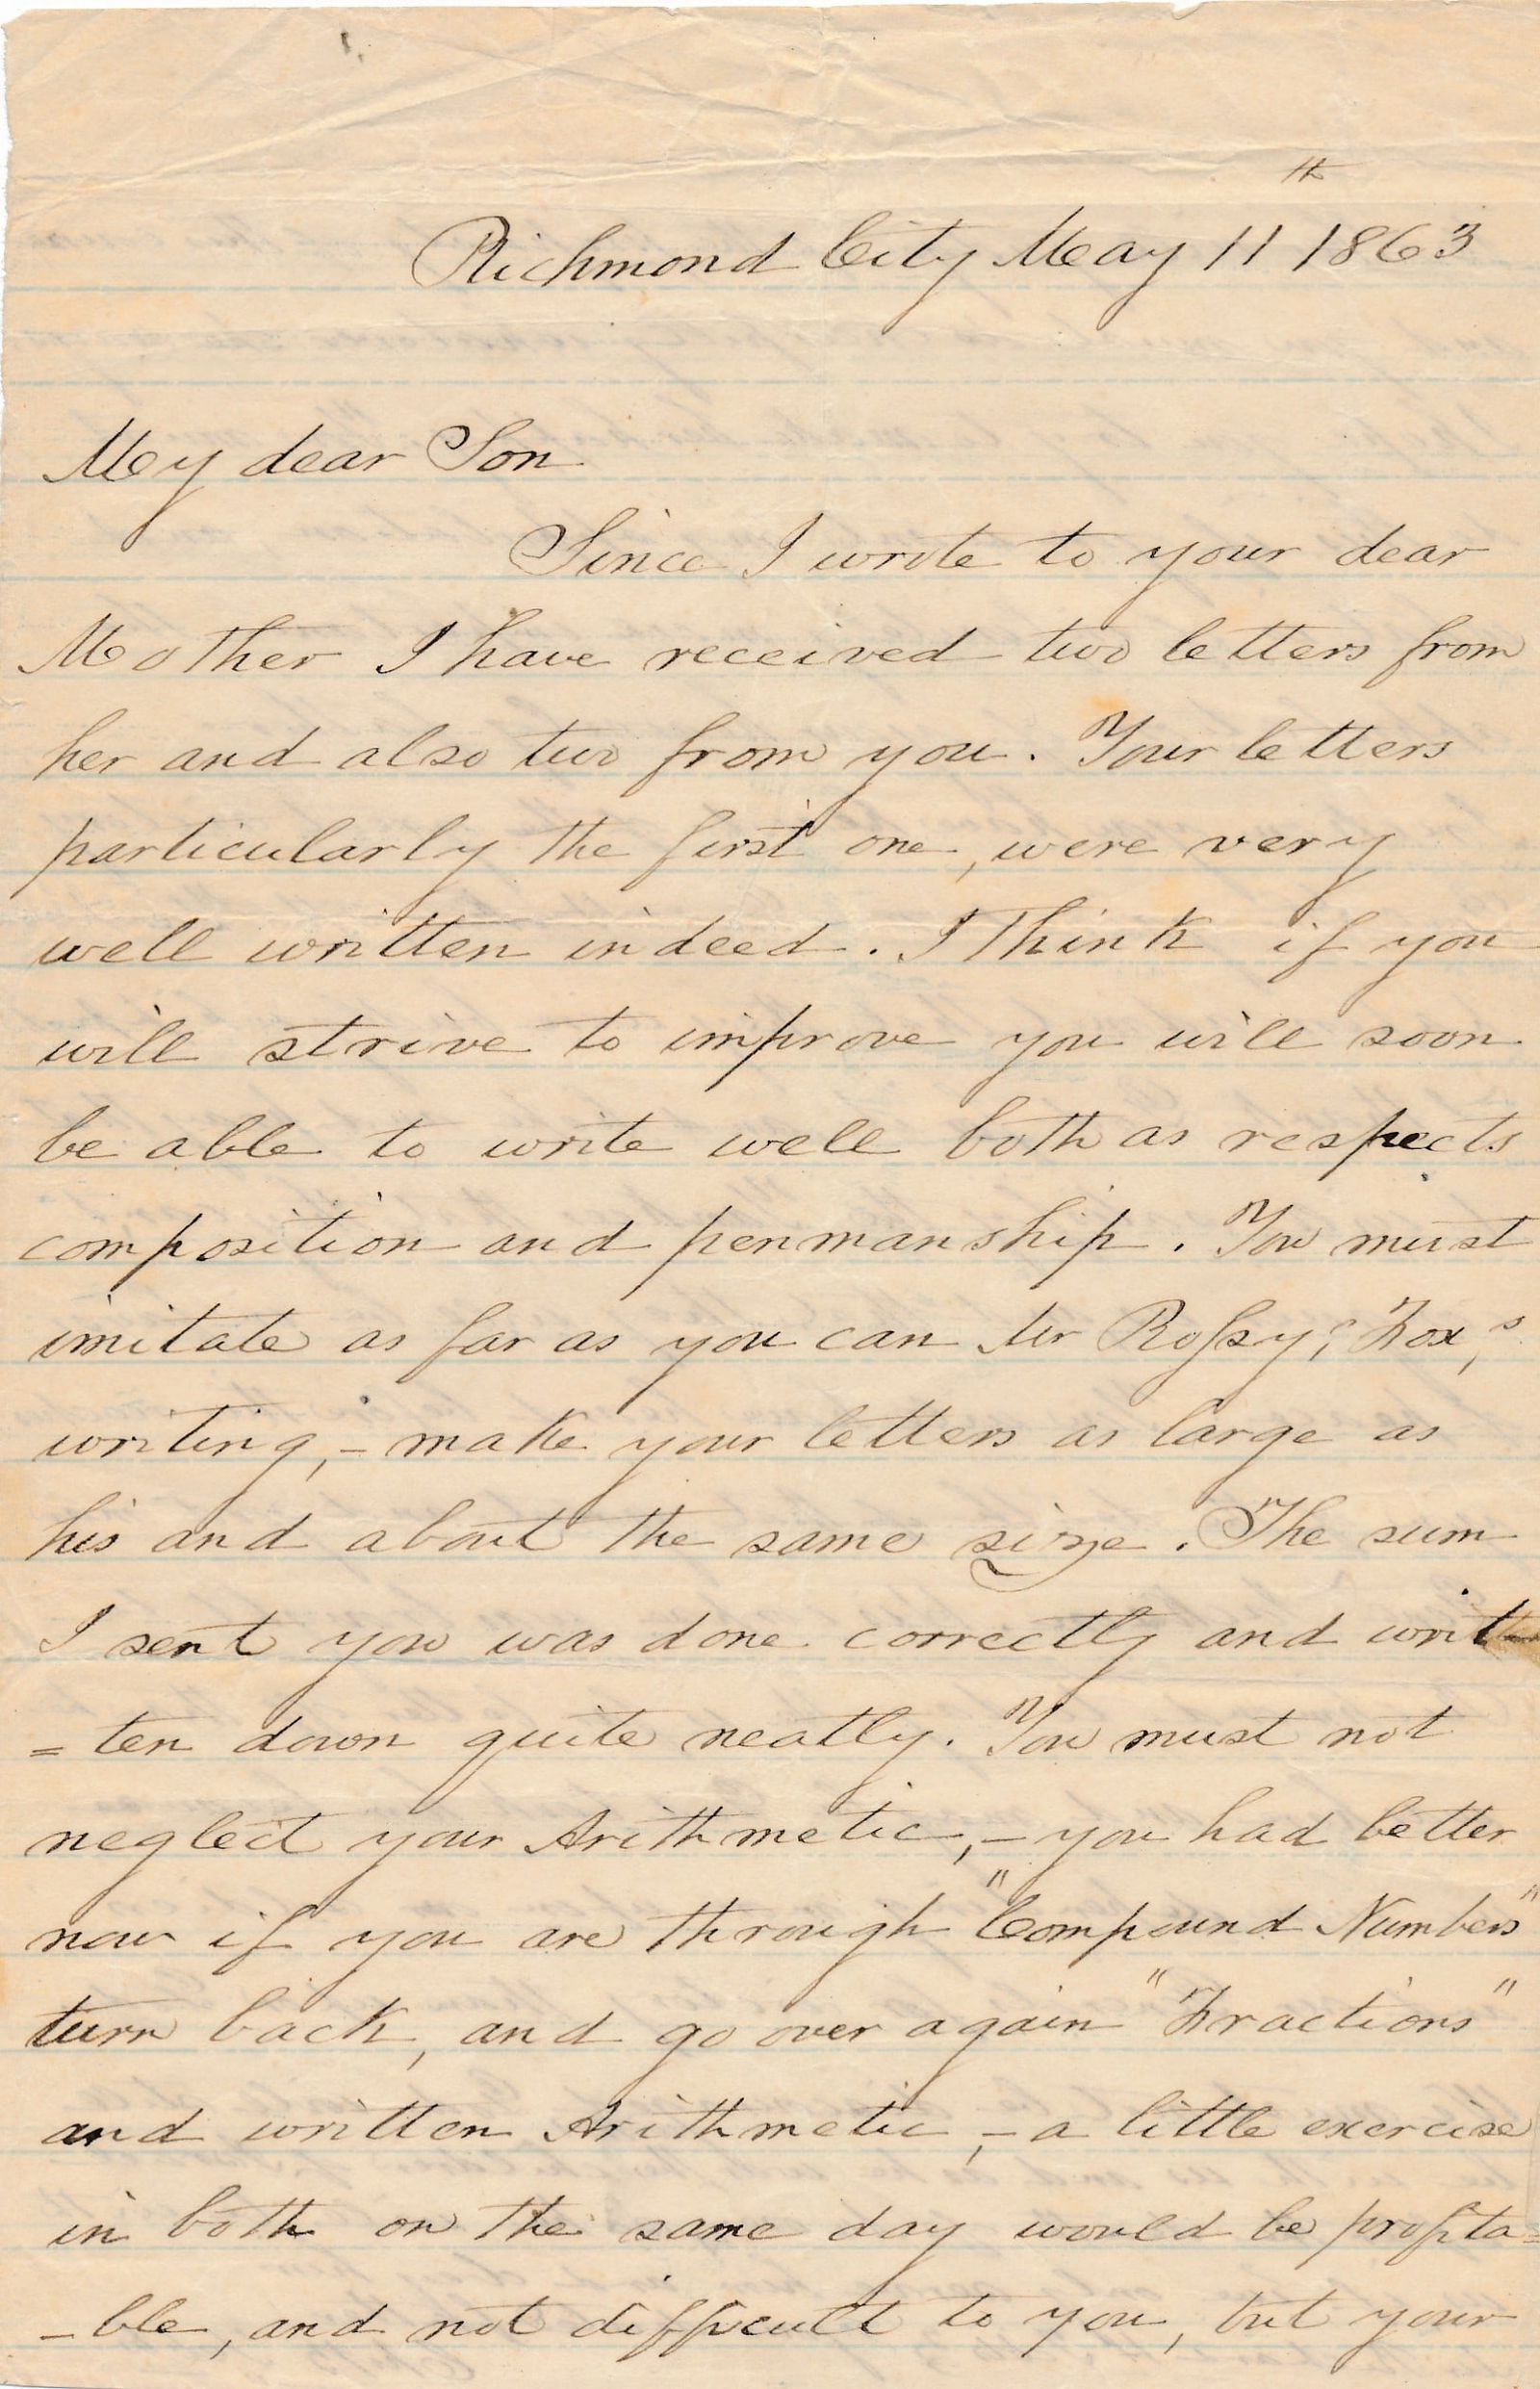 Richmond City May 11th 1863
My dear Son
Since I wrote to your dear
Mother I have received two letters from
her and also two from you. Your letters
particularly the first one, were very
well written indeed. I think if you
will strive to improve you will soon
be able to write well both as respects
composition and penmanship. You must
imitate as far as you can Mr Fox,s
writing,- make your letters as large as
his and about the same size. The sum
I sent you was done correctly and writ-
=ten down quite neatly. You must not
neglect your Arithmetic,- you had better
now if you are through "Compound Numbers"
turn back, and go over again "Fractions"
and written Arithmetic,- a little exercise
in both on the same day would be profita=
-ble, and not difficult to you, but your